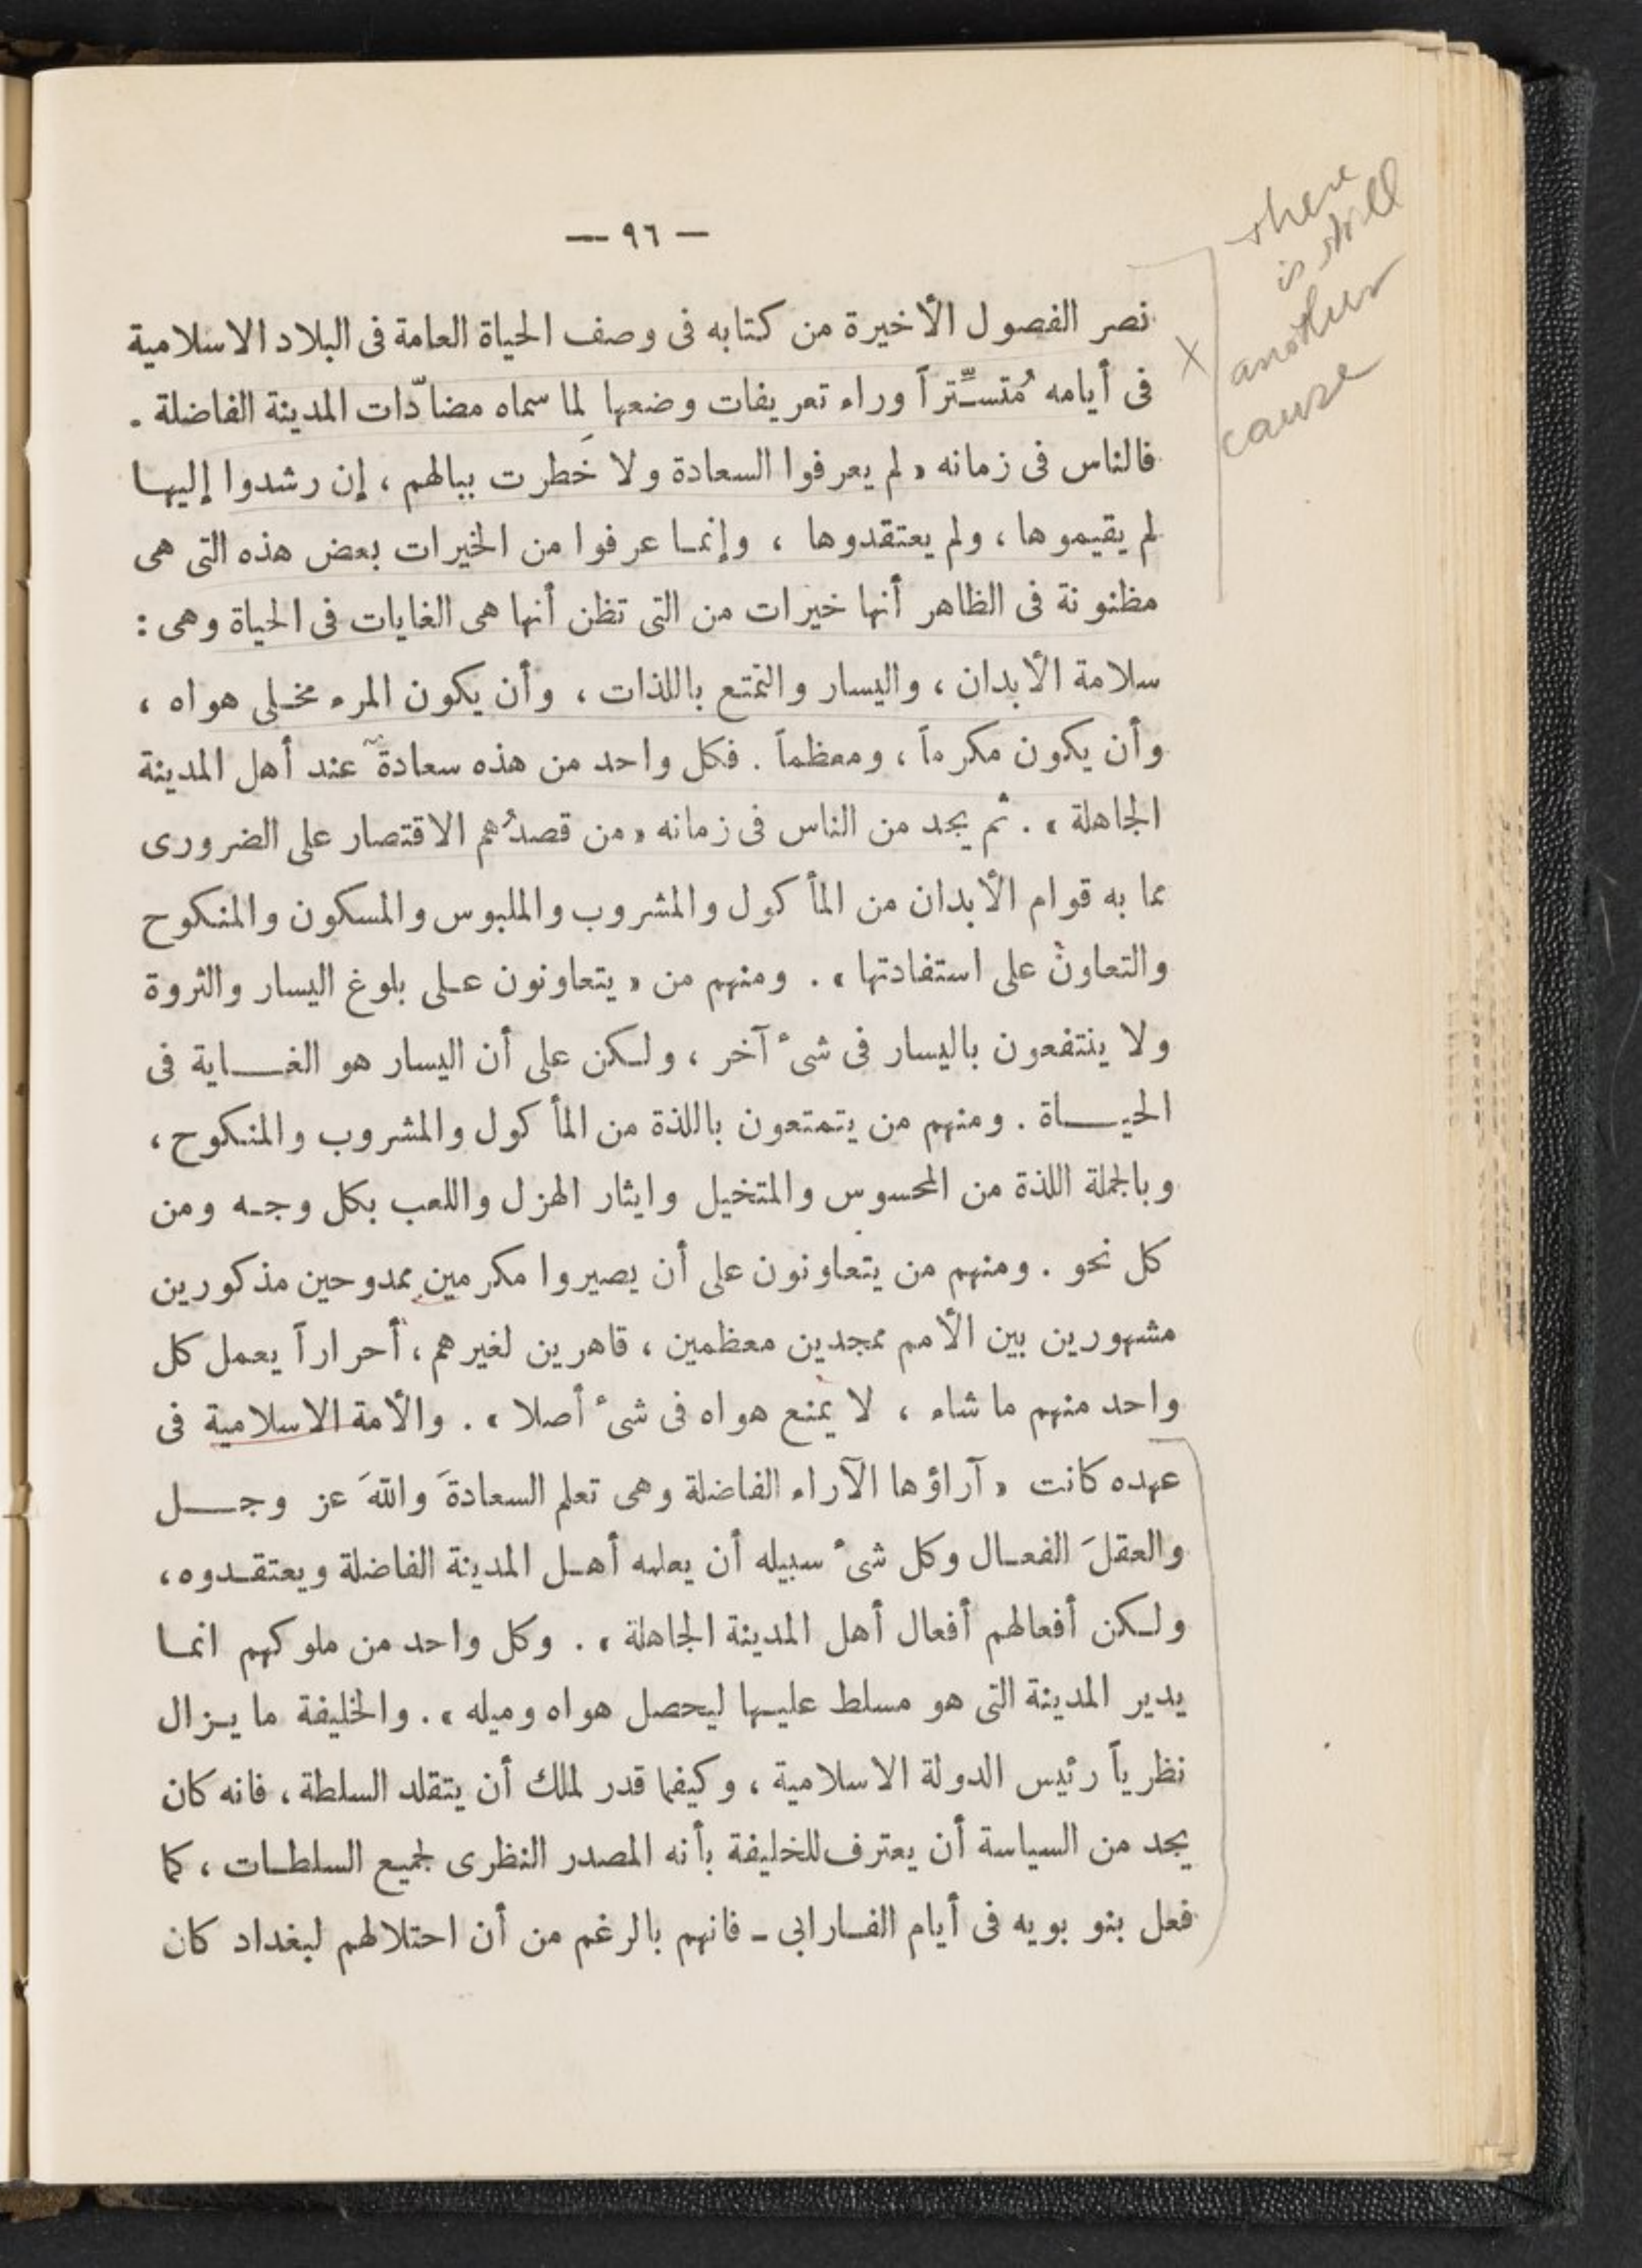 — ٩٦ —
there
is still
another
cause
X
نصر الفصول الأخيرة من كتابه فى وصف الحياة العامة فى البلاد الاسلامية
فى أيامه مُتسـتِّراً وراء تعريفات وضعها لما سماه مضادّات المدينة الفاضلة .
فالناس فى زمانه « لم يعرفوا السعادة ولا خَطرت ببالهم ، إن رشدوا إليها
لم يقيموها ، ولم يعتقدوها ، وإنما عرفوا من الخيرات بعض هذه التى هى
مظنونة فى الظاهر أنها خيرات من التى تظن أنها هى الغايات فى الحياة وهى :
سلامة الأبدان ، واليسار والتمتع باللذات ، وأن يكون المرء مخلى هواه ،
وأن يكون مكرماً ، ومعظماً . فكل واحد من هذه سعادة عند أهل المدينة
الجاهلة » . ثم يجد من الناس فى زمانه « من قصدُهم الاقتصار على الضرورى
مما به قوام الأبدان من المأكول والمشروب والملبوس والمسكون والمنكوح
والتعاون على استفادتها » . ومنهم من « يتعاونون على بلوغ اليسار والثروة
ولا ينتفعون باليسار فى شىء آخر ، ولكن على أن اليسار هو الغـــاية فى
الحيـــاة . ومنهم من يتمتعون باللذة من المأكول والمشروب والمنكوح ،
وبالجملة اللذة من المحسوس والمتخيل وايثار الهزل واللعب بكل وجه ومن
كل نحو . ومنهم من يتعاونون على أن يصيروا مكرمين ممدوحين مذكورين
مشهورين بين الأمم ممجدين معظمين ، قاهرين لغيرهم ، أحراراً يعمل كل
واحد منهم ما شاء ، لا يمنع هواه فى شىء أصلا » . والأمة الاسلامية فى
عهده كانت « آراؤها الآراء الفاضلة وهى تعلم السعادةَ واللهَ عز وجـــل
والعقلَ الفعـال وكل شىء سبيله أن يعلمه أهـل المدينة الفاضلة ويعتقـدوه ،
ولكن أفعالهم أفعال أهل المدينة الجاهلة » . وكل واحد من ملوكهم انما
يدير المدينة التى هو مسلط عليها ليحصل هواه وميله » . والخليفة ما يـزال
نظرياً رئيس الدولة الاسلامية ، وكيفما قدر لملك أن يتقلد السلطة ، فانه كان
يجد من السياسة أن يعترف للخليفة بأنه المصدر النظرى لجميع السلطـات ، كما
فعل بنو بويه فى أيام الفـارابى ـ فانهم بالرغم من أن احتلالهم لبغداد كان